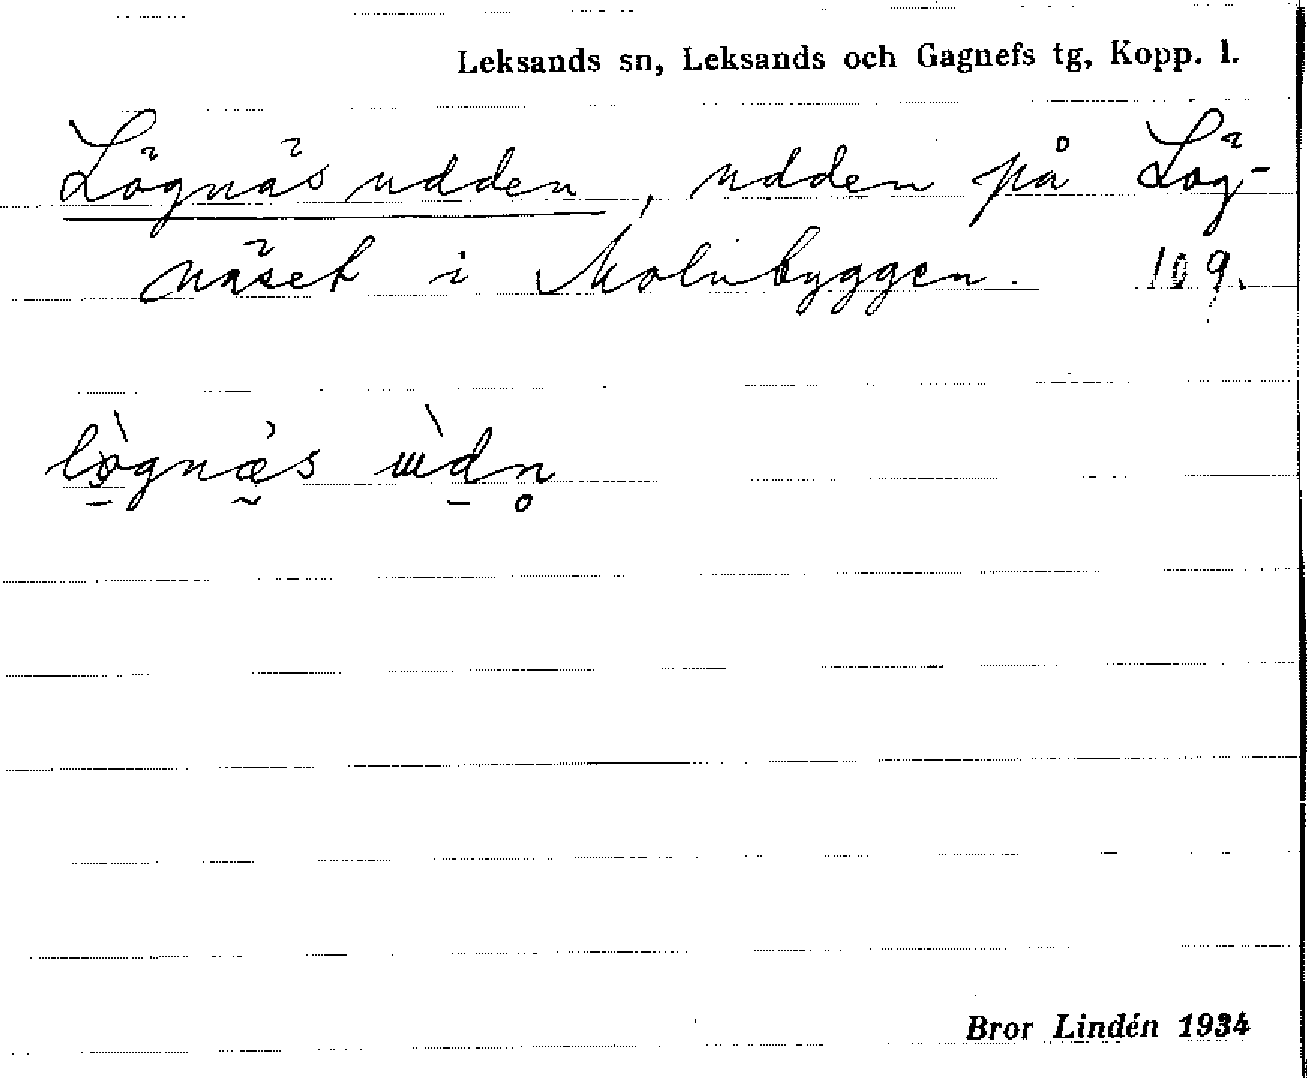 Leksands sn, Leksands och Gagnefs tg, Kopp. l.
Lögnäsudden, udden på Lög-
näset i Molnbyggen. 109.
lògnæ̀s ɯ̀dn̥
Bror Lindén 1934